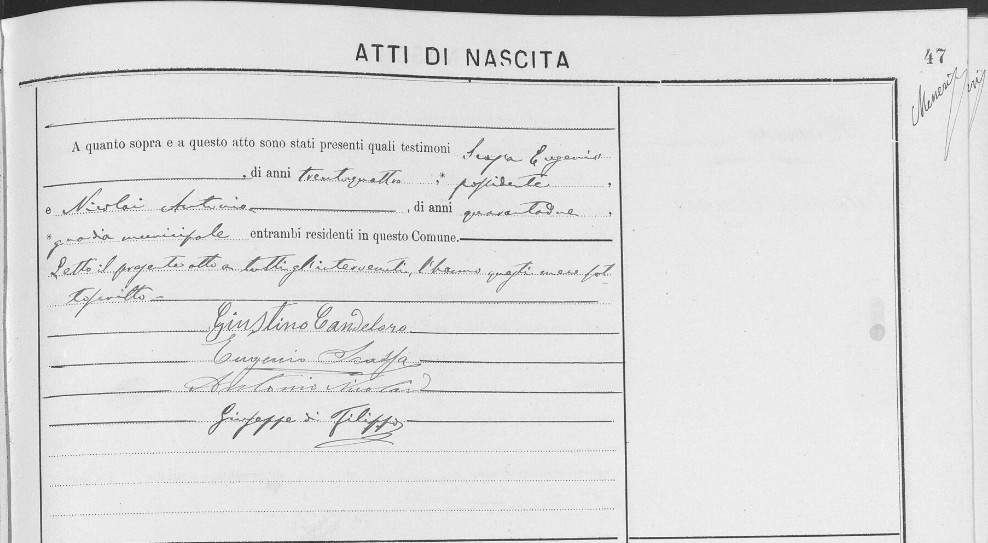 ATTI DI NASCITA
47
A quanto sopra e a questo atto sono stati presenti quali testimoni Scassa Eugenio
, di anni trentaquattro , * possidente ,
e Nicolai Antonio , di anni quarantadue ,
* guardia municipale entrambi residenti in questo Comune.
Letto il presente atto a tutti gli intervenuti, l'hanno questi meco sot
toscritto
Giustino Candeloro
Eugenio Scassa
Antonio
Giuseppe di Filippo